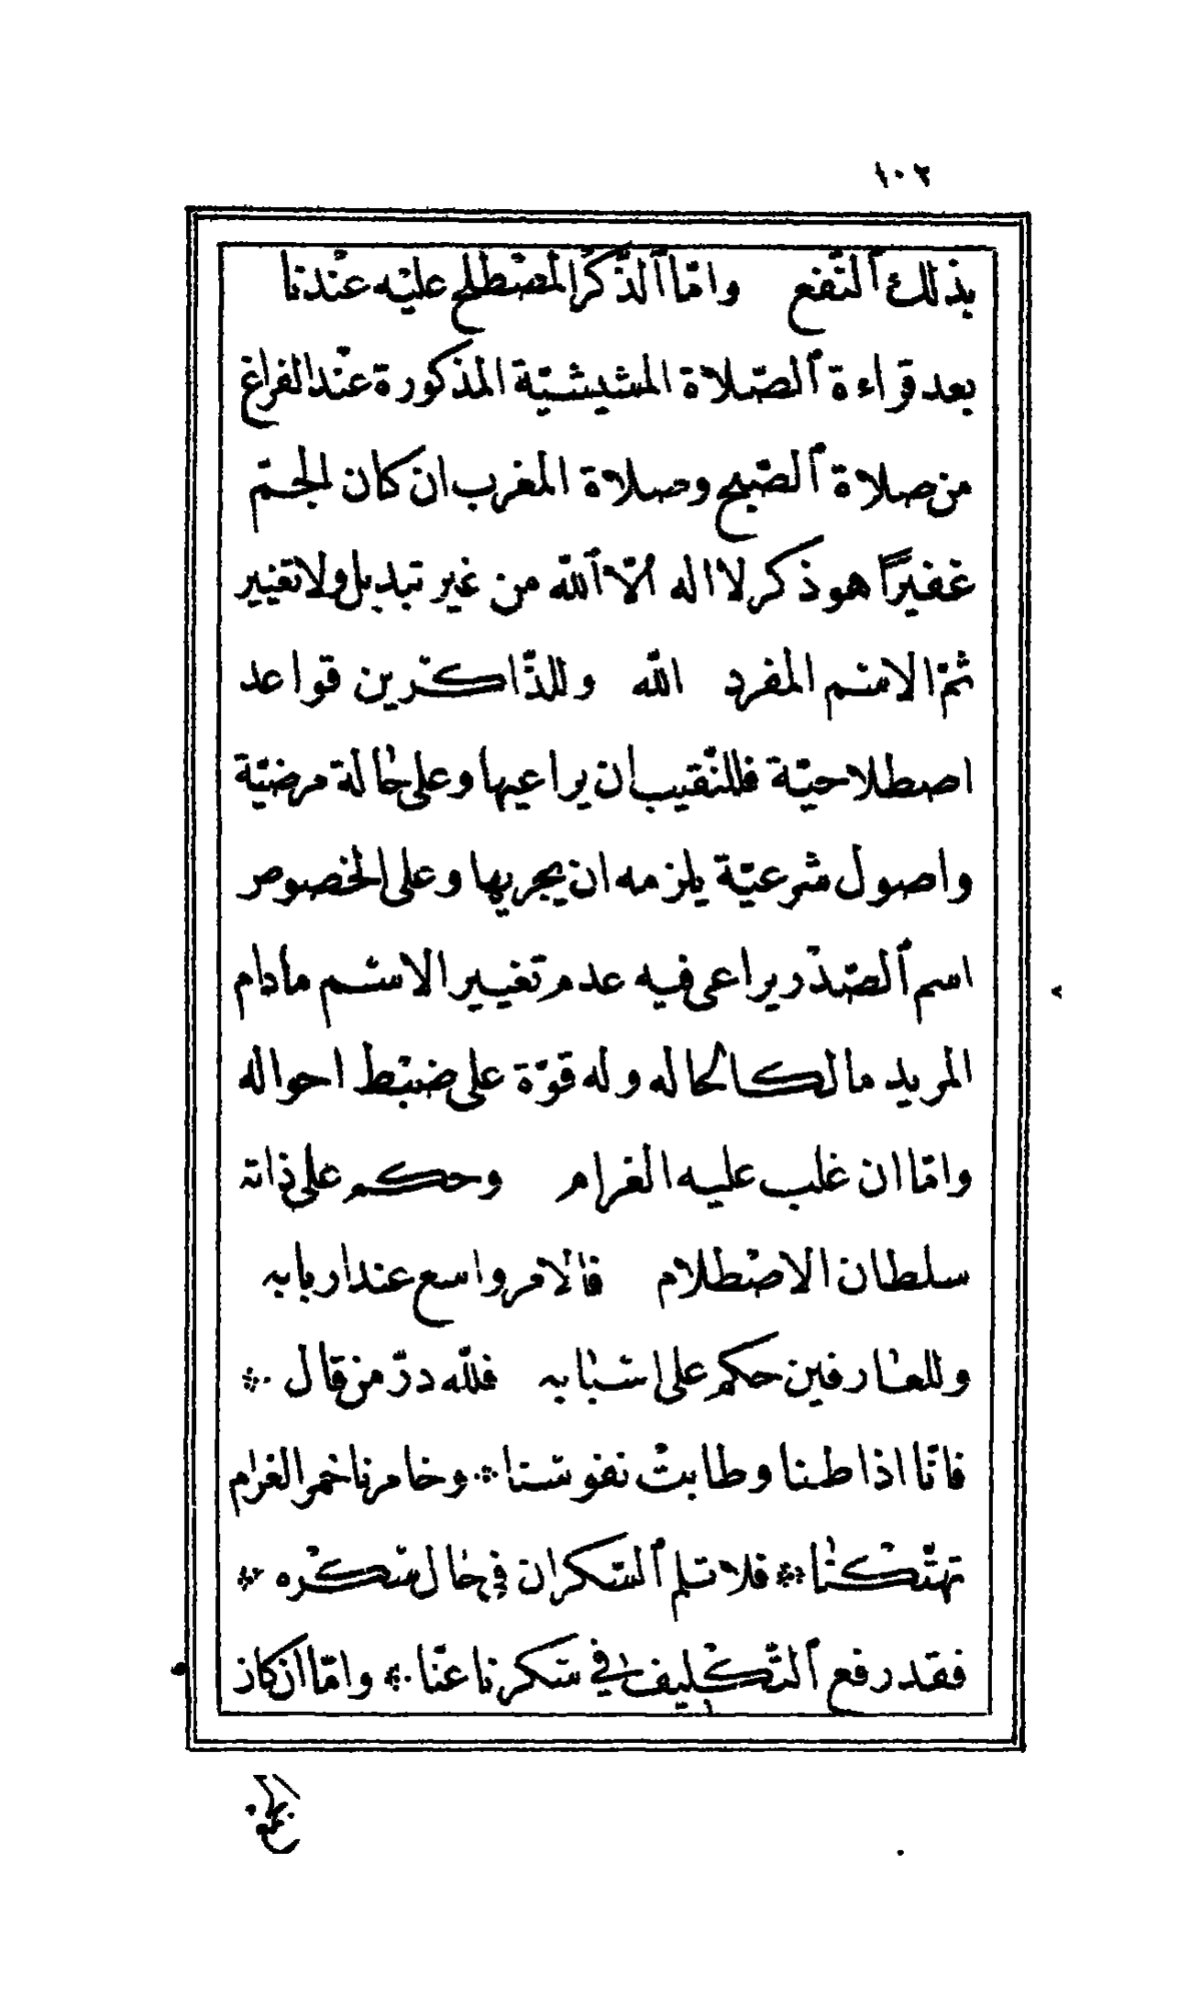 ١٠٢
بذلك ٱلنّفع وامّا ٱلذّكر المصْطلح عليْه عنْدنا
بعد قراءة ٱلصّلاة المشيشيّة المذكورة عنْد الفراغ
من صلاة ٱلصّبح وصلاة المغرب ان كان الجمّ
غفيرًا هو ذكر لا اله الّا ٱللّه من غير تبديل ولا تغيير
ثمّ الاسْم المفرد اللّه وللذّاكرين قواعد
اصطلاحيّة فللنّقيب ان يراعيها وعلى حالة مرضيّة
واصول شرعيّة يلزمه ان يجريها وعلى الخصوص
اسم ٱلصّدْر يراعى فيه عدم تغيير الاسْم مادام
المريد مالكا لحاله وله قوّة على ضبْط احواله
وامّا ان غلب عليه الغرام وحكم على ذاته
سلطان الاصْطلام فالامر واسع عند اربابه
وللعارفين حكم على اسْبابه فللّه درّ من قال
فانّا اذا طبنا وطابتْ نفوسنا وخامرنا خمر الغرام
تهتّكْنا فلا تلم ٱلسّكران في حال سكْره
فقد رفع ٱلتّكْليف في سكرنا عنّا وامّا ان كان
الجمع